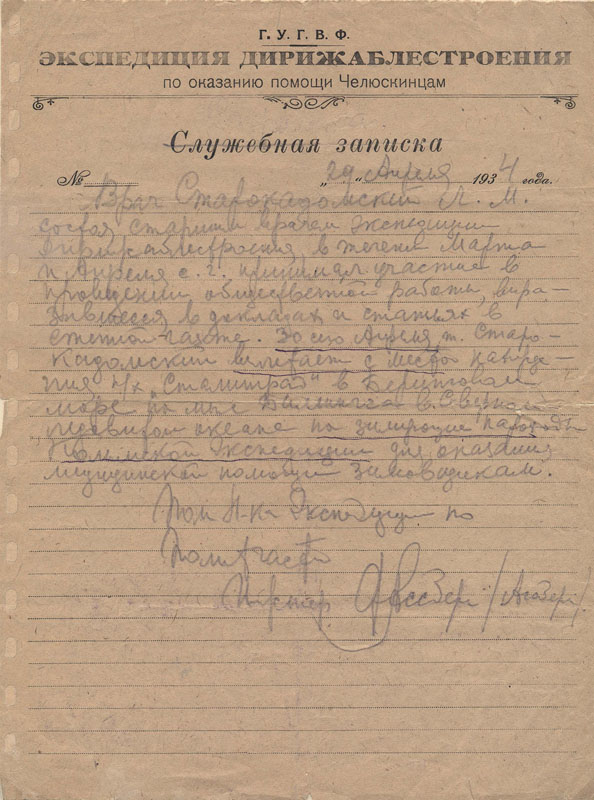 Г. У. Г. В. Ф.
ЭКСПЕДИЦИЯ ДИРИЖАБЛЕСТРОЕНИЯ
по оказанию помощи Челюскинцам
Служебная записка
№ „29“ Апреля 1934 года.
Врач Старокадомский Л. М.
состоя старшим врачом Экспедиции
Дирижаблестроения, в течении Марта
и Апреля с. г. принимал участие в
проведении общественной работы, выра-
зившееся в докладах и статьях в
стенной газете. 30 сего Апреля т. Старо-
кадомский вылетает с места нахожде-
ния п/х „Сталинград“ в Беринговом
море на мыс Биллингса в
Ледовитом океане на зимующие пароходы
Экспедиции для оказания
медицинской помощи зимовщикам.
Пом Н-ка Экспедиции по
Политчасти